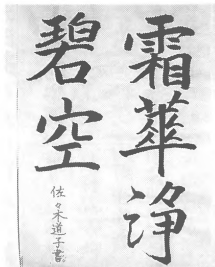 霜華浄
碧空
佐々木道子書